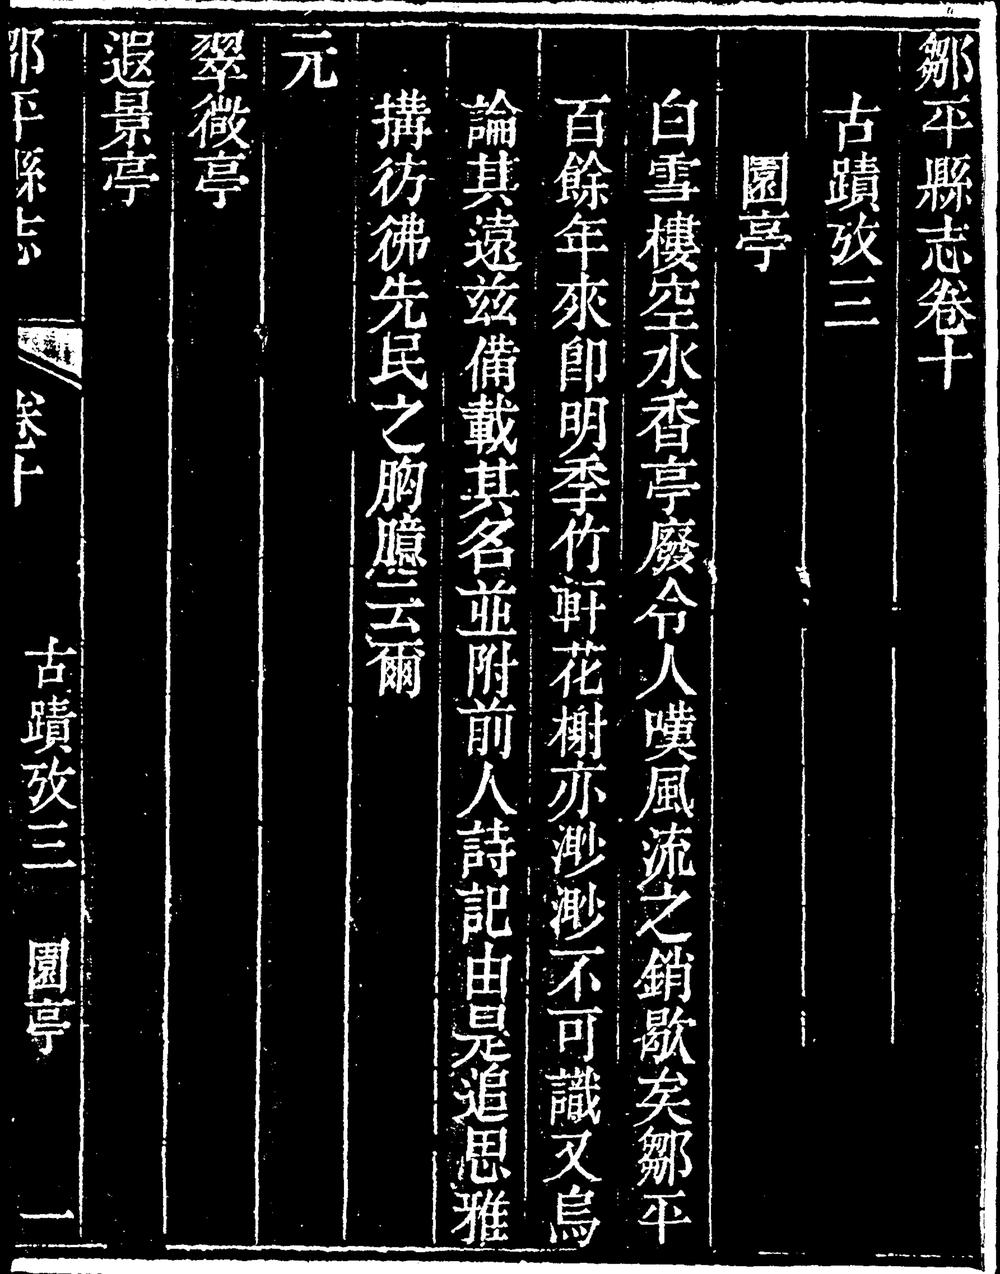 鄒平縣志卷十
古蹟攷三
園亭
白雪樓空水香亭廢令人嘆風流之銷歇矣鄒平
百餘年來卽明季竹軒花榭亦渺渺不可識又烏
論其遠茲備載其名並附前人詩記由是追思雅
搆彷彿先民之胸臆云爾
元
翠微亭
遐景亭
鄒平縣志 卷十 古蹟攷三 園亭 一